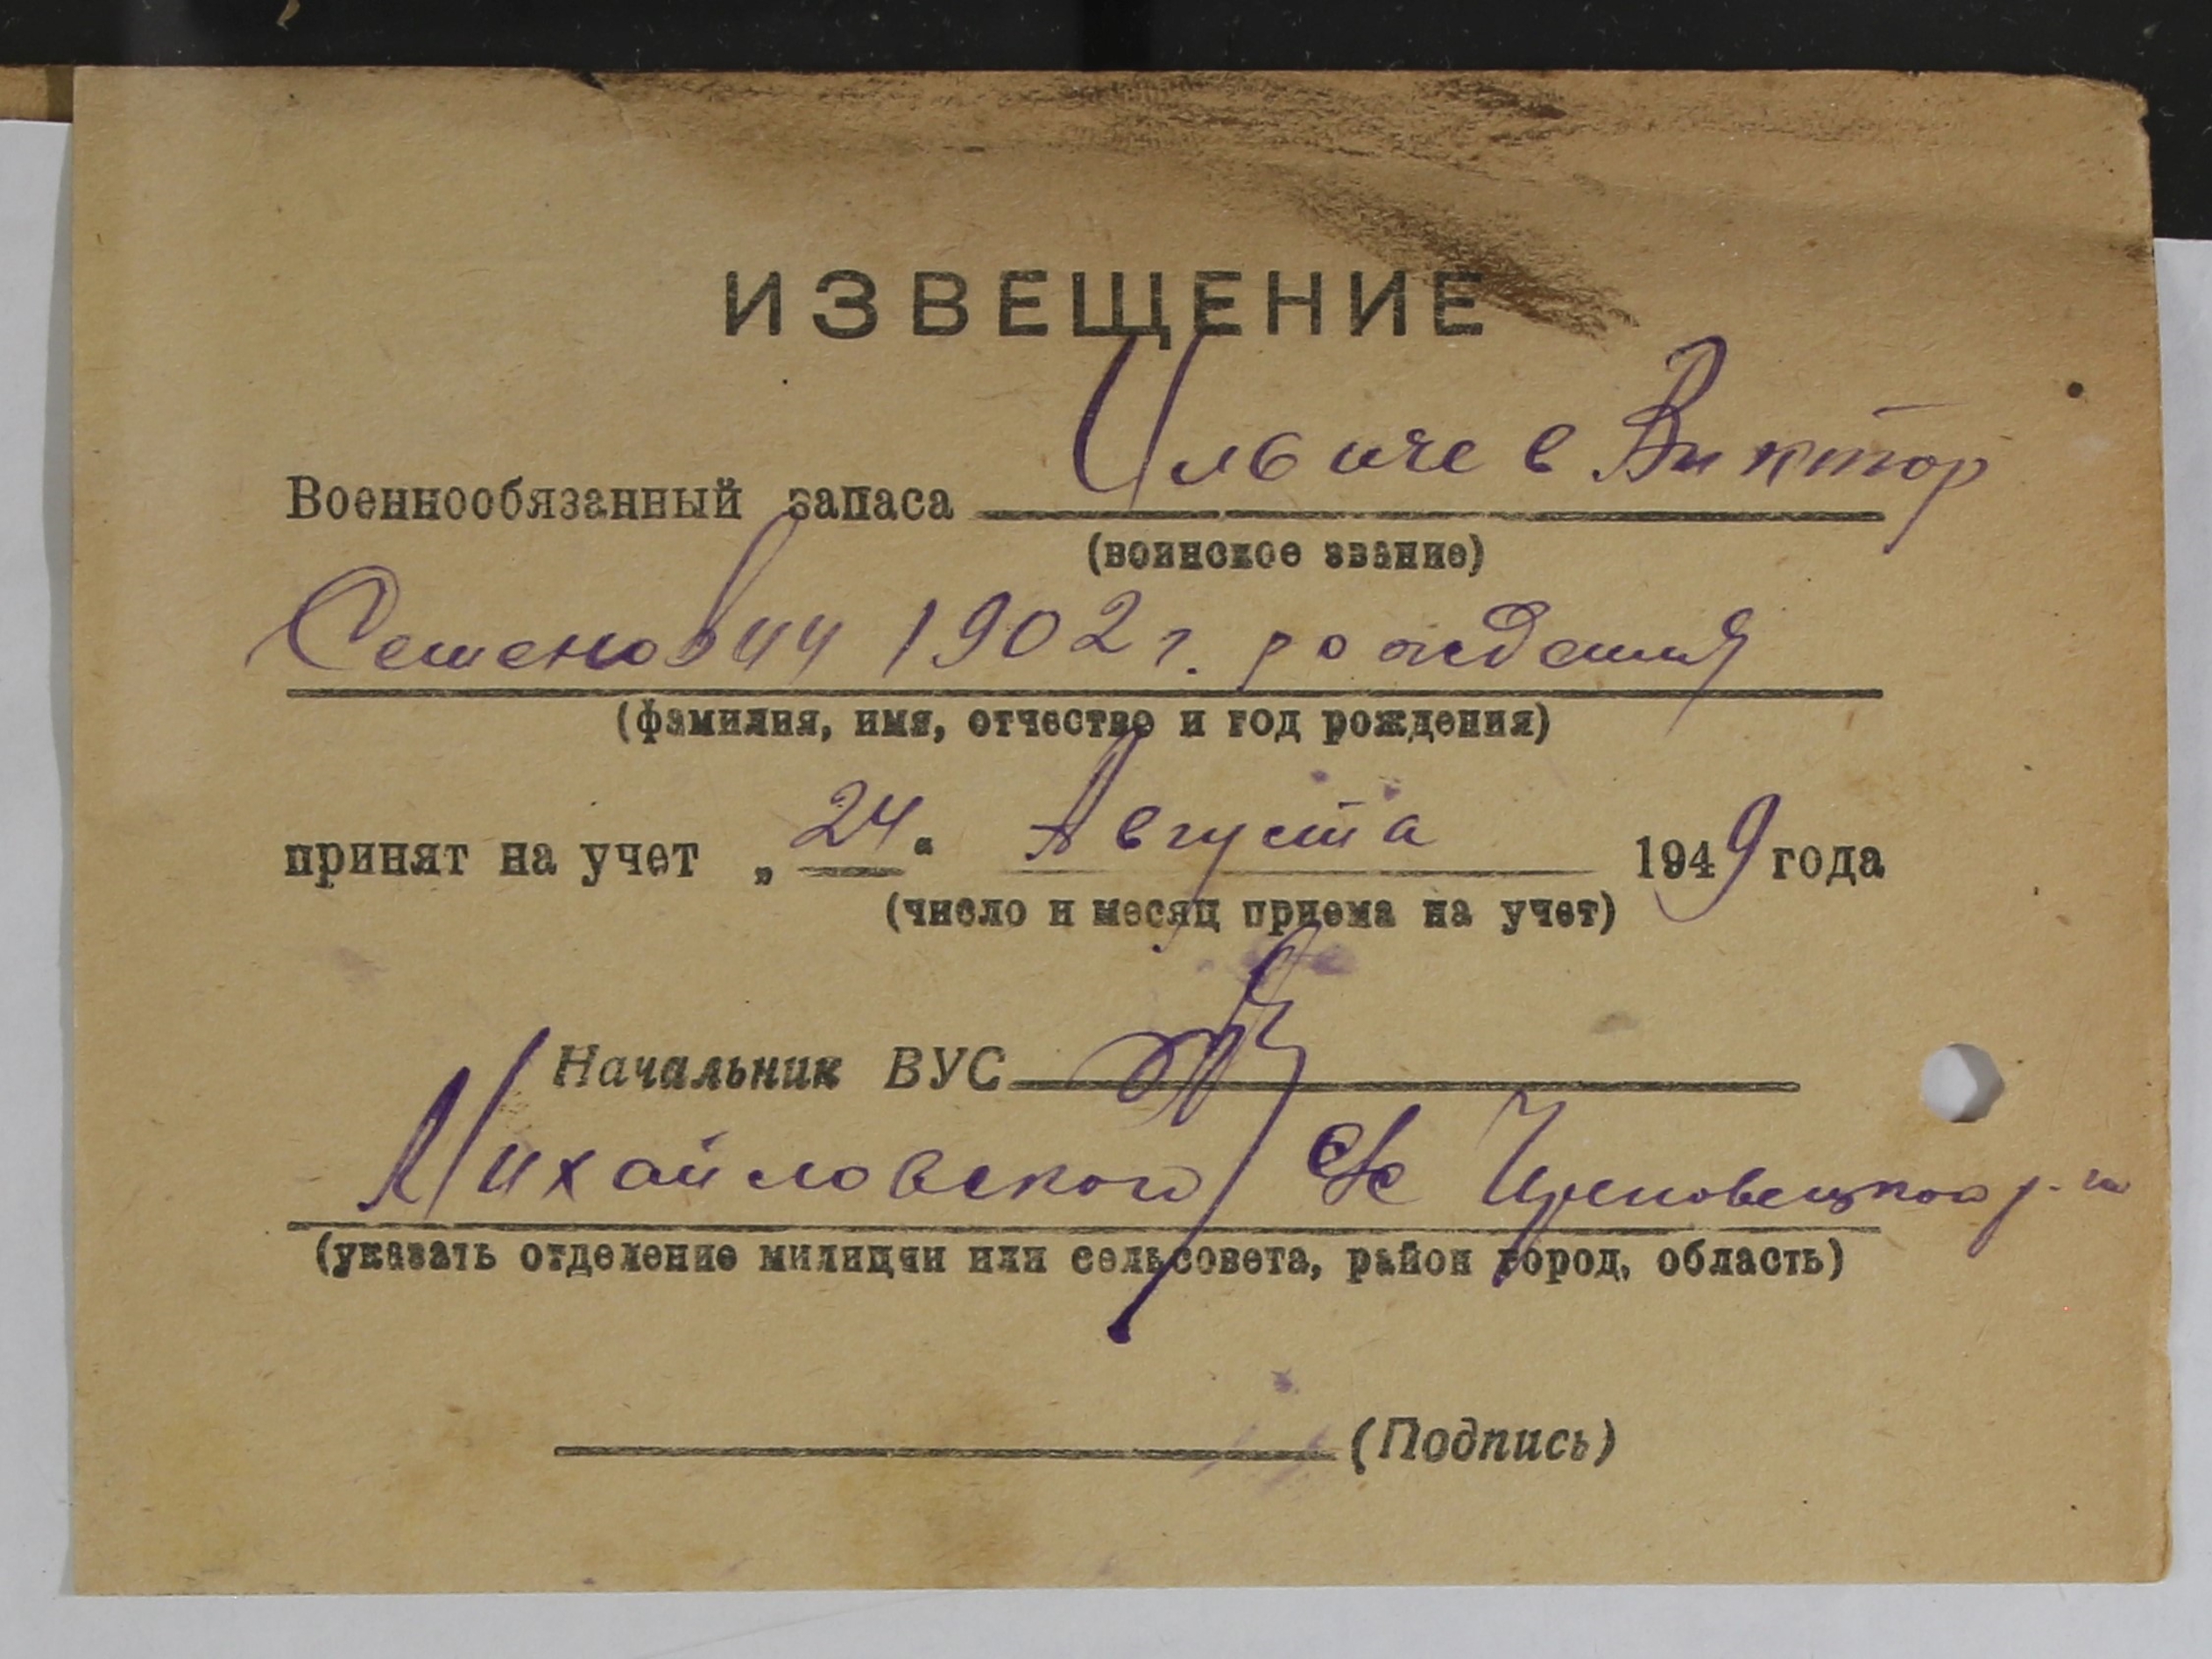 ИЗВЕЩЕНИЕ
Военнообязанный запаса Ильичев Виктор
(воинское звание)
Семенович 1902 г. рождения
(фамилия, имя, отчество и год рождения)
принят на учет „24“ Августа 1949 года
(число и месяц приема на учет)
Начальник ВУС
Михайловского с/с р-на
(указать отделение милиции или сельсовета, район город, область)
(Подпись)